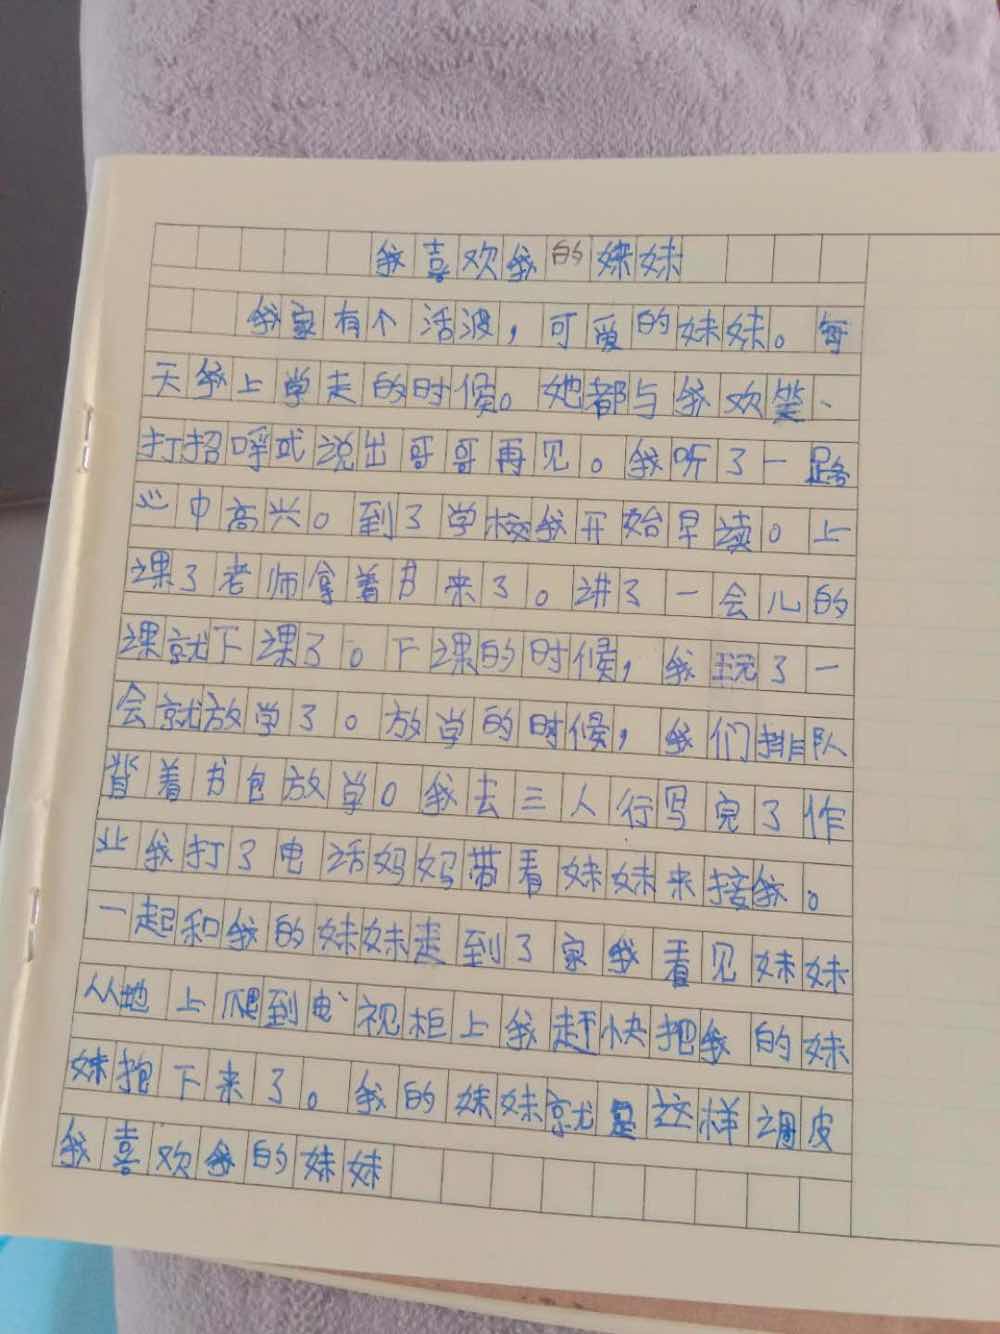 我喜欢我的妹妹
我家有个活波，可爱的妹妹。每
天我上学走的时候。她都与我欢笑、
打招呼或说出哥哥再见。我听了一路
心中高兴。到了学校我开始早读。上
课了老师拿着书来了。讲了一会儿的
课就下课了。下课的时候，我玩了一
会就放学了。放学的时候，我们排队
背着书包放学。我去三人行写完了作
业我打了电话妈妈带着妹妹来接我。
一起和我的妹妹走到了家我看见妹妹
从地上爬到电视柜上我赶快把我的妹
妹抱下来了。我的妹妹就是这样调皮
我喜欢我的妹妹